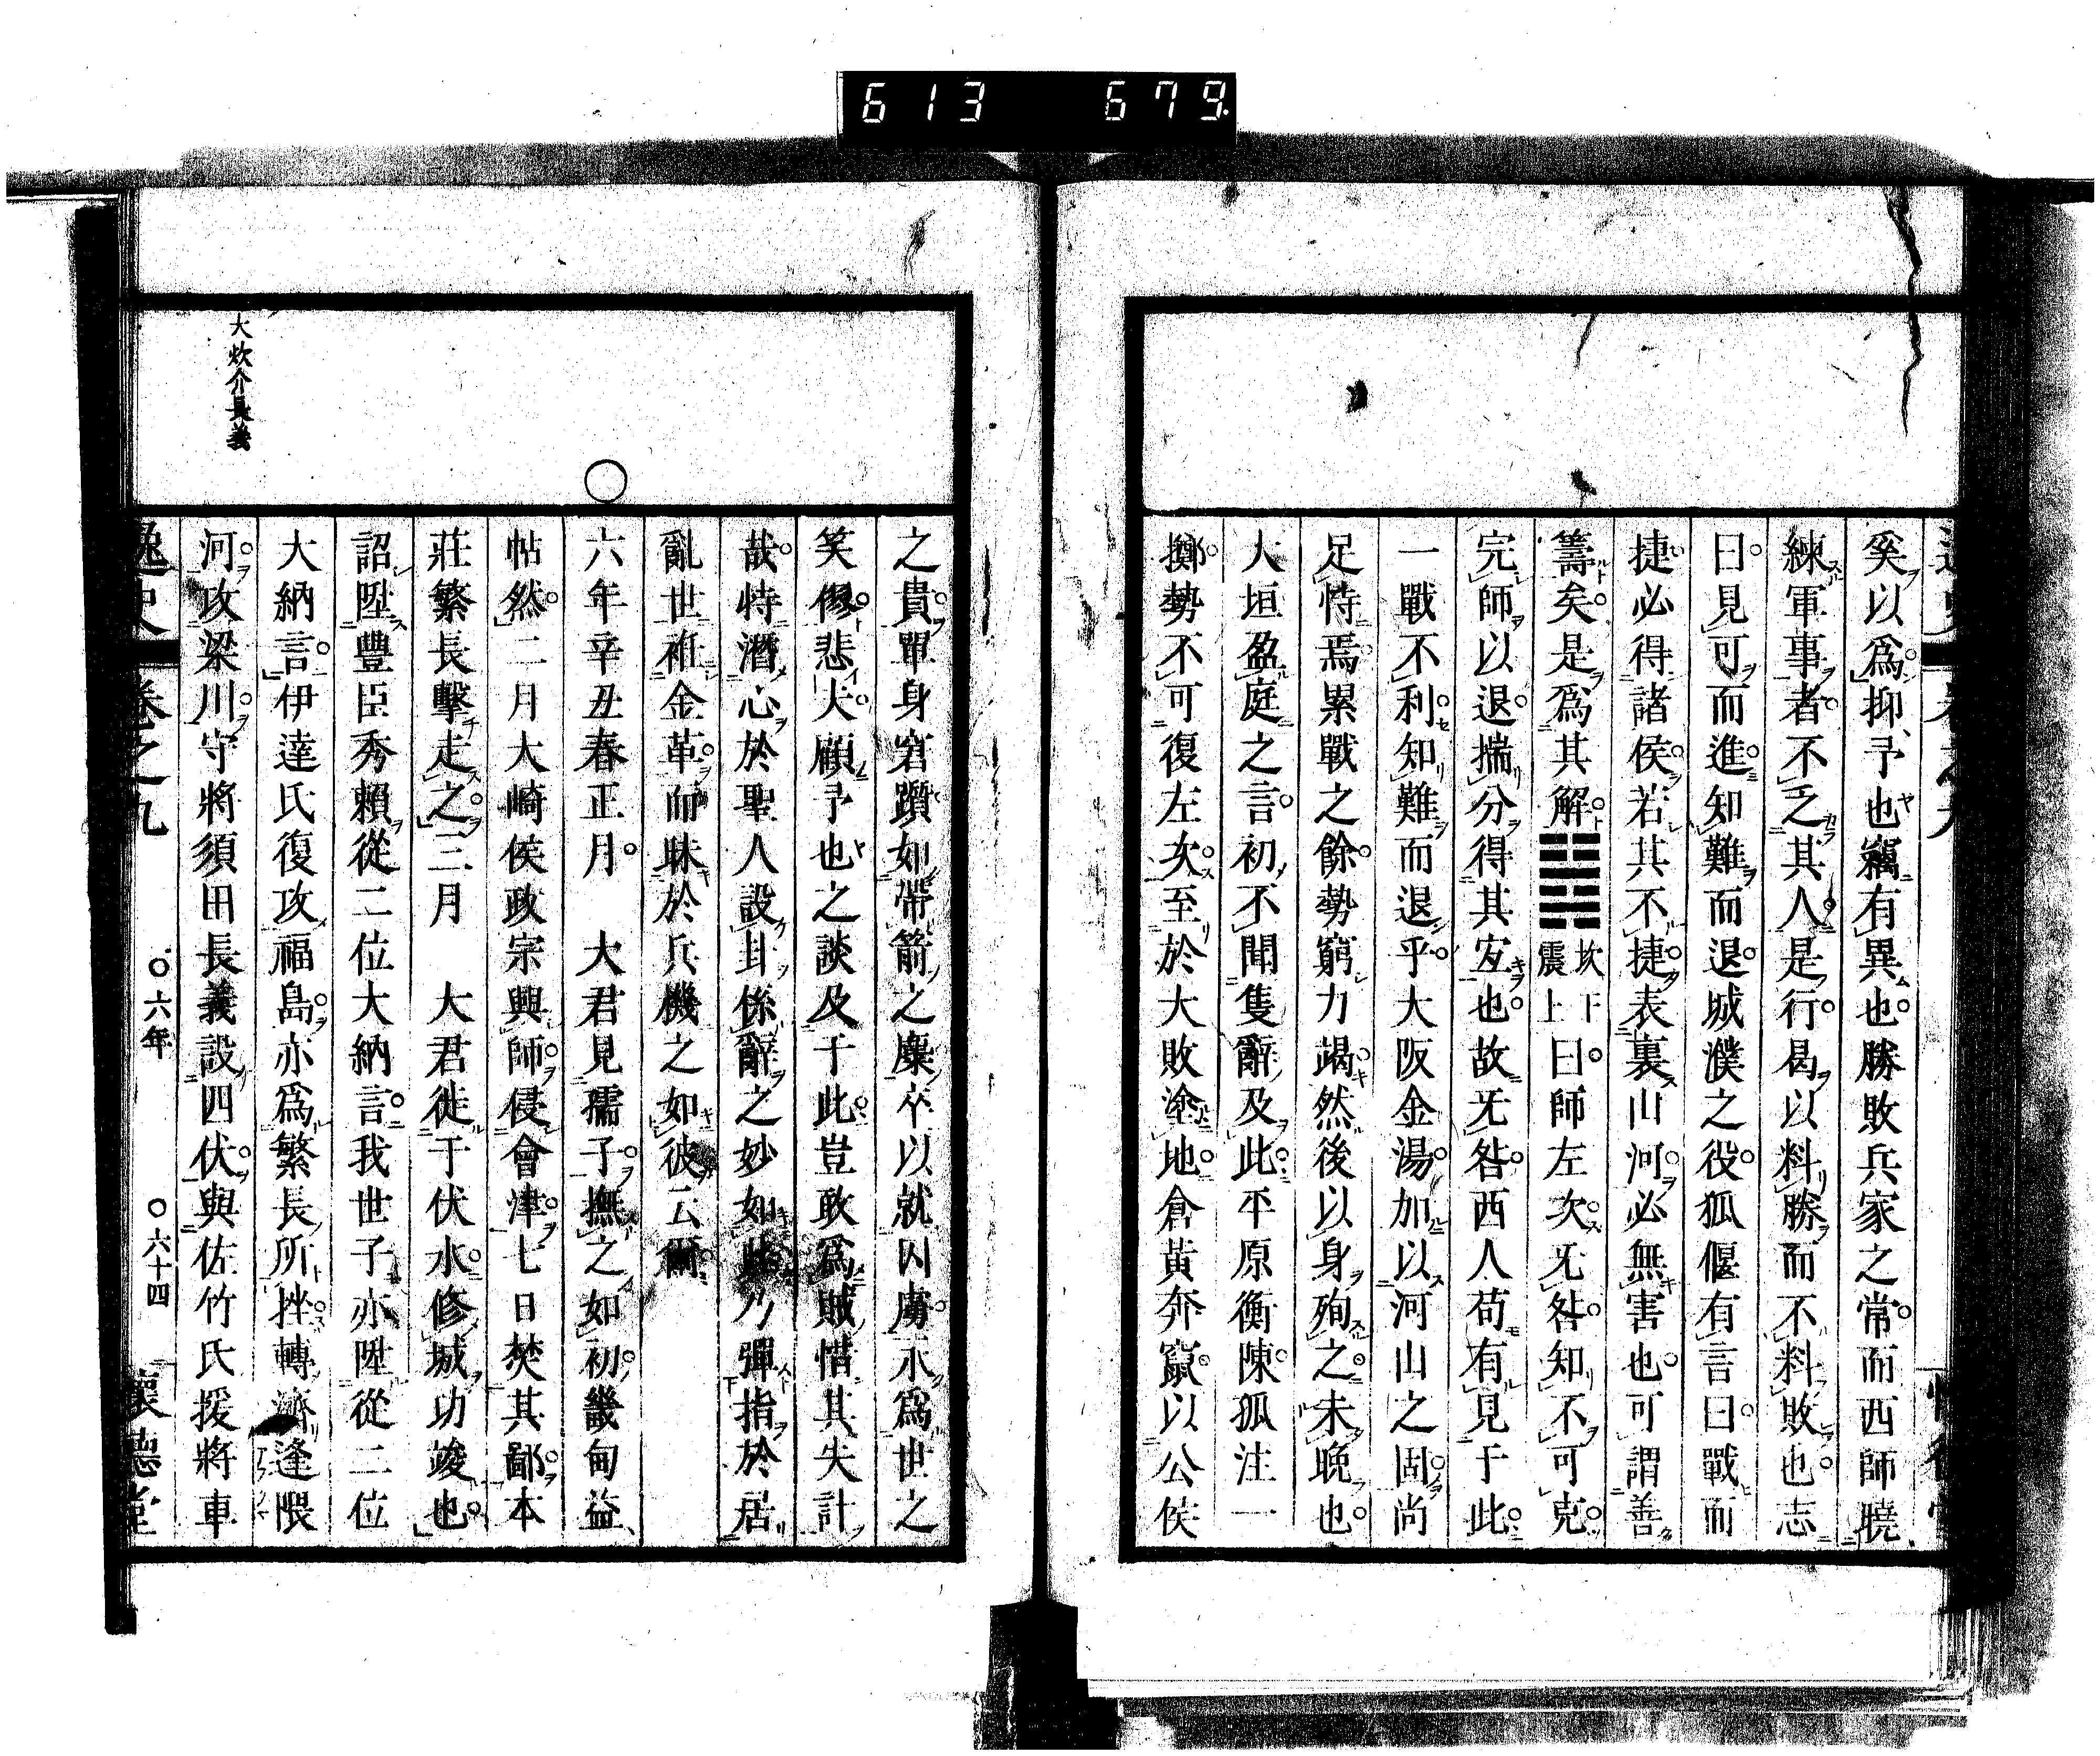 613 679
奚以爲抑予也竊有異也勝敗兵家之常而西師曉
練軍事者不乏其人是行曷以料勝而不料敗也志
曰見可而進知難而退城濮之役狐偃有言曰戰而
捷必得諸侯若其不捷表裏山河必無害也可謂善
籌矣是爲其解坎下震上曰師左次无咎知不可克
完師以退揣分得其宜也故无咎西人苟有見于此
一戰不利知難而退乎大阪金湯加以河山之固尚
足恃焉累戰之餘勢窮力竭然後以身殉之未晩也
大垣盈庭之言初不聞隻辭及此平原衡陳孤注一
擲勢不可復左次至於大敗塗地倉黃奔竄以公侯
之貴單身窘躓如帶箭之麋卒以就囚虜永爲世之
笑僇悲夫顧予也之談及于此豈敢爲賊惜其失計
哉特潛心於聖人設卦係辭之妙如此乃彈指於居
亂世袵金革而昧於兵機之如彼云爾
六年辛丑春正月 大君見孺子撫之如初畿甸益
帖然二月大崎侯政宗興師侵會津七日焚其鄙本
莊繁長擊走之三月 大君徙于伏水修城功竣也
詔陞豐臣秀賴從二位大納言我世子亦陞從二位
大納言伊達氏復攻福島亦爲繁長所挫轉濟逢隈
河攻梁川守將須田長義設四伏與佐竹氏援將車
大炊介長義
逸史 卷之九 六年 六十四 懷德堂